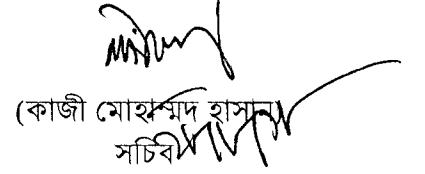 (কাজী মোহাম্মদ হাসান)
সচিব